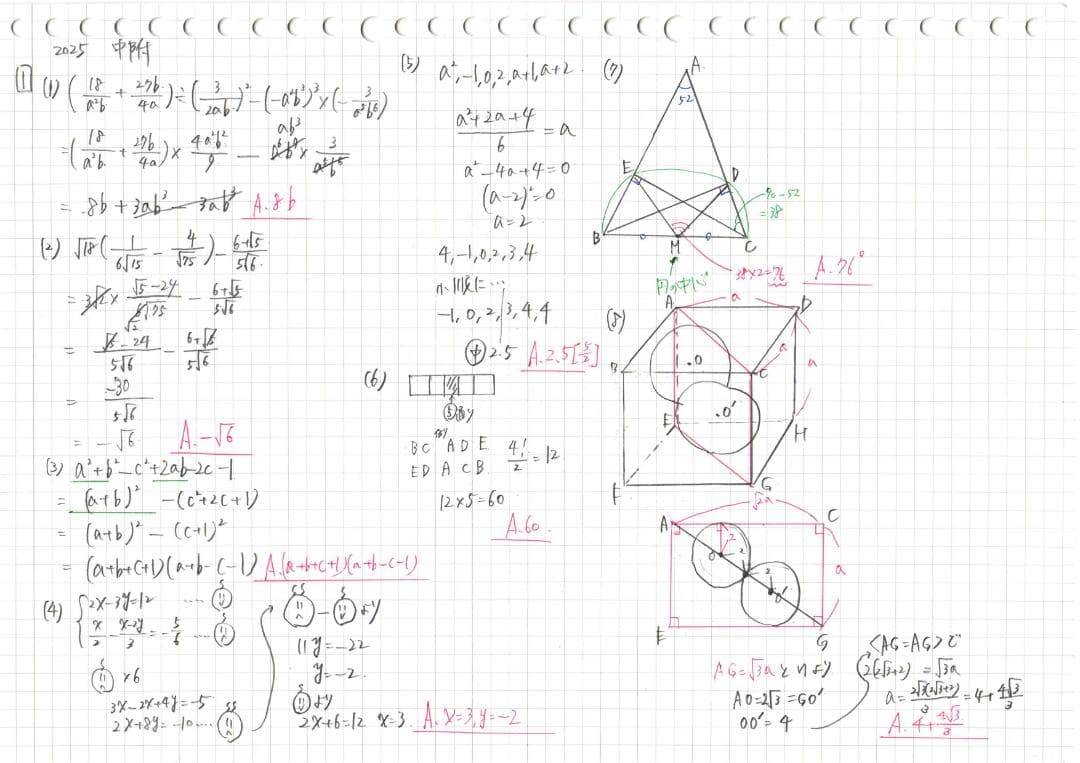 2025 中附
1
(1) (18/a²b + 27b/4a) ÷ (3/2ab)² - (-a²b³)³ × (-3/a⁵b⁶)
= (18/a²b + 27b/4a) × 4a²b²/9 - a⁶b⁹ × 3/a⁵b⁶
ab³
= 8b + 3ab³ - 3ab³ A. 8b
(2) √18 (1/6√15 - 4/√75) - 6+√5/5√6
= 3√2 × √5-24/6√75 - 6+√5/5√6
√2
= √5-24/5√6 - 6+√5/5√6
= -30/5√6
= -√6 A. -√6
(3) a²+b²-c²+2ab-2c-1
= (a+b)² - (c²+2c+1)
= (a+b)² - (c+1)²
= (a+b+c+1)(a+b-c-1) A. (a+b+c+1)(a+b-c-1)
(4) { 2x-3y=12 ....
x/2 - x-2y/3 = -5/6 ....
×6
3x-2x+4y=-5
2x+8y=-10 ....
- より
11y=-22
y=-2
より
2x+6=12 x=3 A. x=3, y=-2
(5) a², -1, 0, 2, a+1, a+2
a²+2a+4/6 = a
a²-4a+4=0
(a-2)²=0
a=2
4, -1, 0, 2, 3, 4
小順に…
-1, 0, 2, 3, 4, 4
中 2.5 A. 2.5 [5/2]
(6)
BC A D E 4!/2 = 12
ED A C B
12×5=60
A. 60
(7) A
52
E
D
90-52
=38
B
M
C
円の中心
38×2=76 A. 76°
(8) A a D
B
.O
C
a
a
E
.O'
H
F
G
√2a
A
C
2
O
2
2
O'
a
E
G
AG=√3a と
AO=2√3=GO'
OO'=4
<AG=AG>で
2(2√3+2)=√3a
a=2√3(2√3+2)/3=4+4√3/3
A. 4+4√3/3